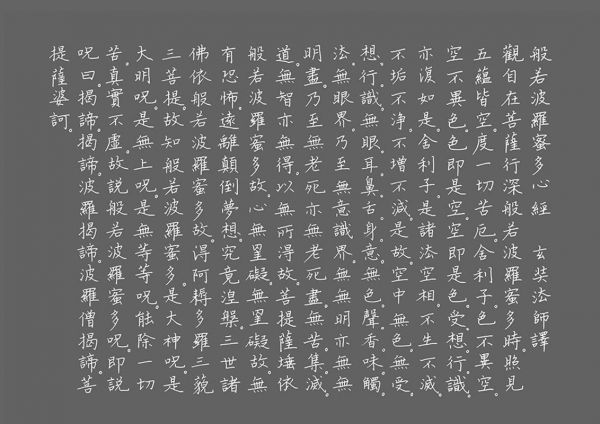 般若波羅蜜多心經　玄奘法師譯
觀自在菩薩行深般若波羅蜜多時。照見
五蘊皆空。度一切苦厄。舍利子。色不異空。
空不異色。色即是空。空即是色。受想行識。
亦復如是。舍利子。是諸法空相。不生不滅。
不垢不淨。不增不減。是故空中無色。無受
想行識。無眼耳鼻舌身意。無色聲香味觸
法。無眼界。乃至無意識界。無無明。亦無無
明盡。乃至無老死。亦無老死盡。無苦集滅
道。無智亦無得。以無所得故。菩提薩埵。依
般若波羅蜜多故。心無罣礙。無罣礙故。無
有恐怖。遠離顛倒夢想。究竟涅槃。三世諸
佛。依般若波羅蜜多故。得阿耨多羅三藐
三菩提。故知般若波羅蜜多。是大神呪。是
大明呪。是無上呪。是無等等呪。能除一切
苦。真實不虛。故說般若波羅蜜多呪。即說
呪曰。揭諦。揭諦。波羅揭諦。波羅僧揭諦。菩
提薩婆訶。